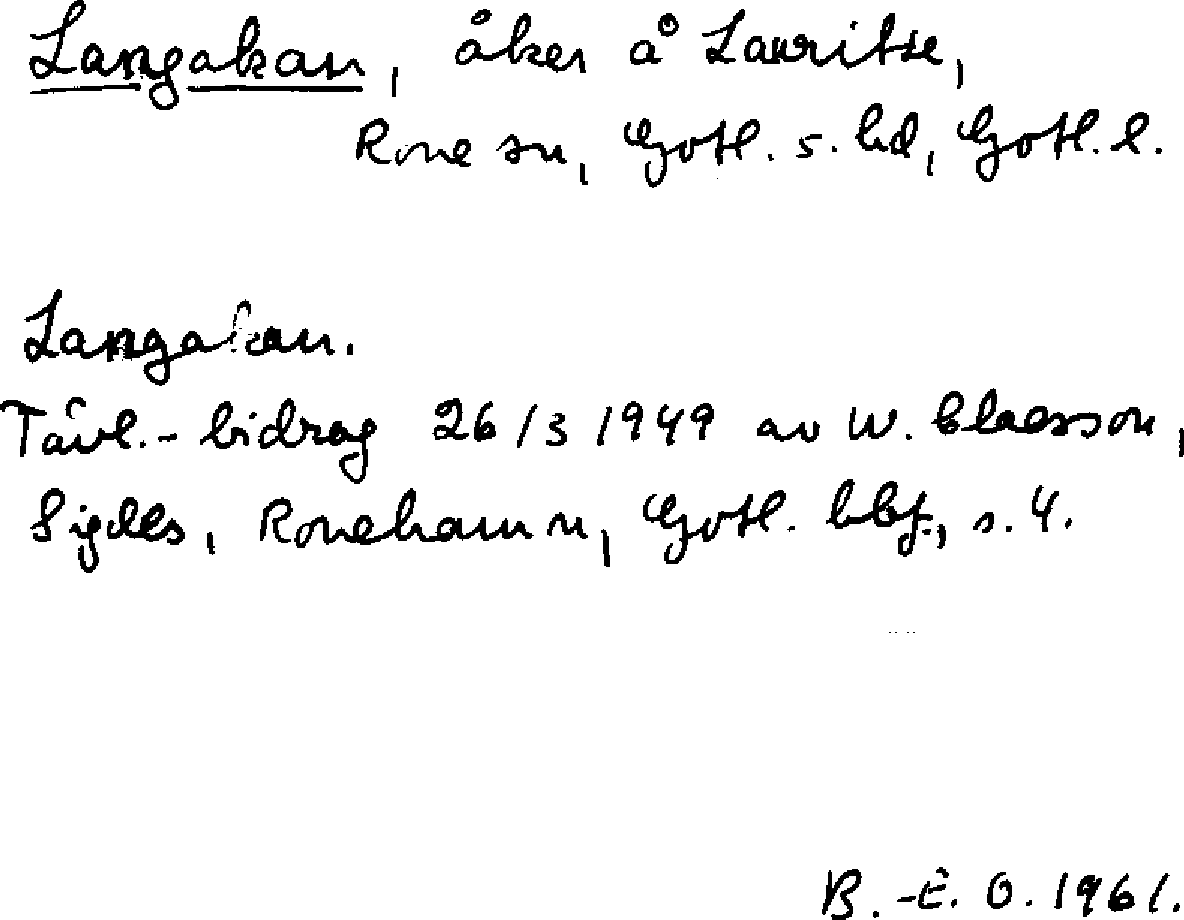 Langakan, åker å Lauritse,
Rone sn, Gotl. s. hd, Gotl. l.
Langakan.
Tävl.-bidrag 26/3 1949 av W. Claesson,
Sigdes, Ronehamn, Gotl. hbf., s. 4.
B.-E. O. 1961.